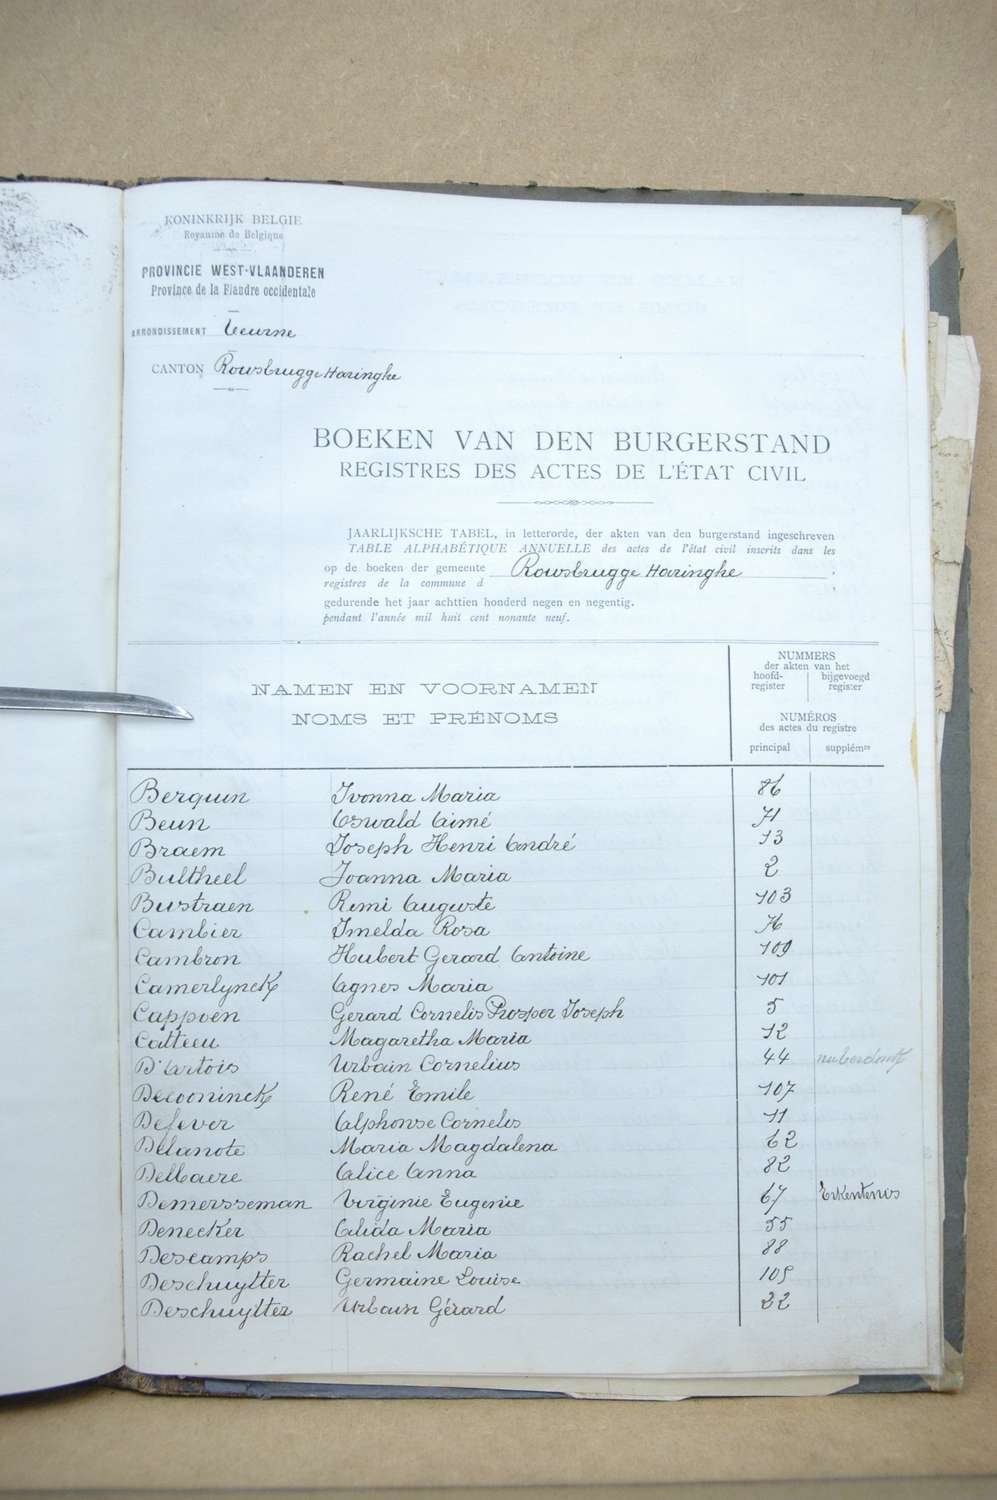 KONINKRIJK BELGIE
Royaume de Belgique
PROVINCIE WEST-VLAANDEREN
Province de la Flandre occidentale
ARRONDISSEMENT Veurne
CANTON Rousbrugge Haringhe
BOEKEN VAN DEN BURGERSTAND
REGISTRES DES ACTES DE L'ÉTAT CIVIL
JAARLIJKSCHE TABEL, in letterorde, der akten van den burgerstand ingeschreven
TABLE ALPHABÉTIQUE ANNUELLE des actes de l'état civil inscrits dans les
op de boeken der gemeente Rousbrugge Haringhe.
registres de la commune d
gedurende het jaar achttien honderd negen en negentig.
pendant l'année mil huit cent nonante neuf.
NAMEN EN VOORNAMEN
NOMS ET PRÉNOMS
NUMMERS
der akten van het
hoofd- bijgevoegd
register register
NUMÉROS
des actes du registre
principal supplémre
Berquin Ivonna Maria 86
Beun Oswald Aimé 71
Braem Joseph Henri André 13
Bultheel Joanna Maria 2
Bustraen Remi Auguste 103
Cambier Imelda Rosa 76
Cambron Hubert Gerard Antoine 109
Camerlynck Agnes Maria 101
Cappoen Gerard Cornelis Prosper Joseph 5
Catteeu Magaretha Maria 12
D'Artois Urbain Cornelius 44
Decooninck René Emile 107
Defever Alphonse Cornelis 11
Delanote Maria Magdalena 62
Delbaere Alice Anna 82
Demersseman Virginie Eugenie 67 Erkentenis
Denecker Alida Maria 55
Descamps Rachel Maria 88
Deschuytter Germaine Louise 105
Deschuytter Urbain Gérard 32